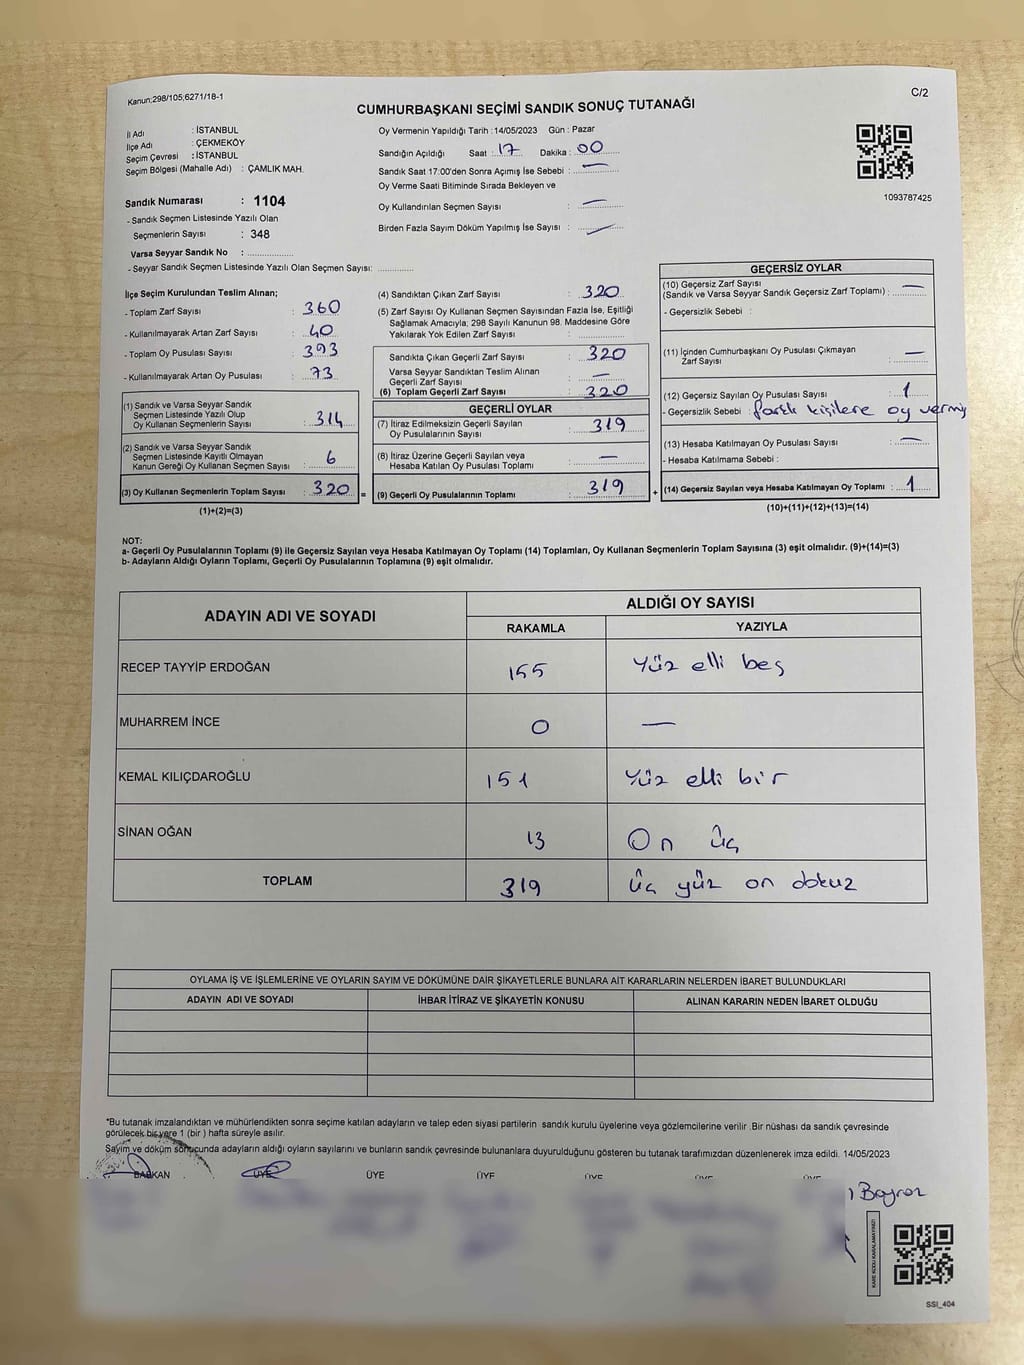 Kanun:298/105;6271/18-1
C/2
CUMHURBAŞKANI SEÇİMİ SANDIK SONUÇ TUTANAĞI
İl Adı : İSTANBUL
İlçe Adı : ÇEKMEKÖY
Seçim Çevresi : İSTANBUL
Seçim Bölgesi (Mahalle Adı) : ÇAMLIK MAH.
Sandık Numarası : 1104
- Sandık Seçmen Listesinde Yazılı Olan
Seçmenlerin Sayısı : 348
Varsa Seyyar Sandık No : ..............
- Seyyar Sandık Seçmen Listesinde Yazılı Olan Seçmen Sayısı: ............
Oy Vermenin Yapıldığı Tarih : 14/05/2023 Gün : Pazar
Sandığın Açıldığı Saat : 17 Dakika : 00
Sandık Saat 17:00'den Sonra Açımış İse Sebebi : —
Oy Verme Saati Bitiminde Sırada Bekleyen ve
Oy Kullandırılan Seçmen Sayısı : —
Birden Fazla Sayım Döküm Yapılmış İse Sayısı : —
1093787425
İlçe Seçim Kurulundan Teslim Alınan;
- Toplam Zarf Sayısı : 360
- Kullanılmayarak Artan Zarf Sayısı : 40
- Toplam Oy Pusulası Sayısı : 393
- Kullanılmayarak Artan Oy Pusulası : 73
(1) Sandık ve Varsa Seyyar Sandık
Seçmen Listesinde Yazılı Olup
Oy Kullanan Seçmenlerin Sayısı : 314
(2) Sandık ve Varsa Seyyar Sandık
Seçmen Listesinde Kayıtlı Olmayan
Kanun Gereği Oy Kullanan Seçmen Sayısı : 6
(3) Oy Kullanan Seçmenlerin Toplam Sayısı : 320 =
(1)+(2)=(3)
(4) Sandıktan Çıkan Zarf Sayısı : 320
(5) Zarf Sayısı Oy Kullanan Seçmen Sayısından Fazla İse, Eşitliği
Sağlamak Amacıyla; 298 Sayılı Kanunun 98. Maddesine Göre
Yakılarak Yok Edilen Zarf Sayısı :
Sandıkta Çıkan Geçerli Zarf Sayısı : 320
Varsa Seyyar Sandıktan Teslim Alınan
Geçerli Zarf Sayısı : —
(6) Toplam Geçerli Zarf Sayısı : 320
GEÇERLİ OYLAR
(7) İtiraz Edilmeksizin Geçerli Sayılan
Oy Pusulalarının Sayısı : 319
(8) İtiraz Üzerine Geçerli Sayılan veya
Hesaba Katılan Oy Pusulası Toplamı : —
(9) Geçerli Oy Pusulalarının Toplamı : 319 +
GEÇERSİZ OYLAR
(10) Geçersiz Zarf Sayısı
(Sandık ve Varsa Seyyar Sandık Geçersiz Zarf Toplamı) : —
- Geçersizlik Sebebi :
(11) İçinden Cumhurbaşkanı Oy Pusulası Çıkmayan
Zarf Sayısı : —
(12) Geçersiz Sayılan Oy Pusulası Sayısı : 1
- Geçersizlik Sebebi : farklı kişilere oy vermiş
(13) Hesaba Katılmayan Oy Pusulası Sayısı : —
- Hesaba Katılmama Sebebi :
(14) Geçersiz Sayılan veya Hesaba Katılmayan Oy Toplamı : 1
(10)+(11)+(12)+(13)=(14)
NOT:
a- Geçerli Oy Pusulalarının Toplamı (9) ile Geçersiz Sayılan veya Hesaba Katılmayan Oy Toplamı (14) Toplamları, Oy Kullanan Seçmenlerin Toplam Sayısına (3) eşit olmalıdır. (9)+(14)=(3)
b- Adayların Aldığı Oyların Toplamı, Geçerli Oy Pusulalarının Toplamına (9) eşit olmalıdır.
ADAYIN ADI VE SOYADI
ALDIĞI OY SAYISI
RAKAMLA YAZIYLA
RECEP TAYYİP ERDOĞAN 155 Yüz elli beş
MUHARREM İNCE 0 —
KEMAL KILIÇDAROĞLU 151 Yüz elli bir
SİNAN OĞAN 13 On üç
TOPLAM 319 üç yüz on dokuz
OYLAMA İŞ VE İŞLEMLERİNE VE OYLARIN SAYIM VE DÖKÜMÜNE DAİR ŞİKAYETLERLE BUNLARA AİT KARARLARIN NELERDEN İBARET BULUNDUKLARI
ADAYIN ADI VE SOYADI İHBAR İTİRAZ VE ŞİKAYETİN KONUSU ALINAN KARARIN NEDEN İBARET OLDUĞU
*Bu tutanak imzalandıktan ve mühürlendikten sonra seçime katılan adayların ve talep eden siyasi partilerin sandık kurulu üyelerine veya gözlemcilerine verilir .Bir nüshası da sandık çevresinde
görülecek bir yere 1 (bir ) hafta süreyle asılır.
Sayım ve döküm sonucunda adayların aldığı oyların sayılarını ve bunların sandık çevresinde bulunanlara duyurulduğunu gösteren bu tutanak tarafımızdan düzenlenerek imza edildi. 14/05/2023
BAŞKAN ÜYE ÜYE ÜYE ÜYE ÜYE ÜYE
KARE KODU KARALAMAYINIZ!
SSI_404